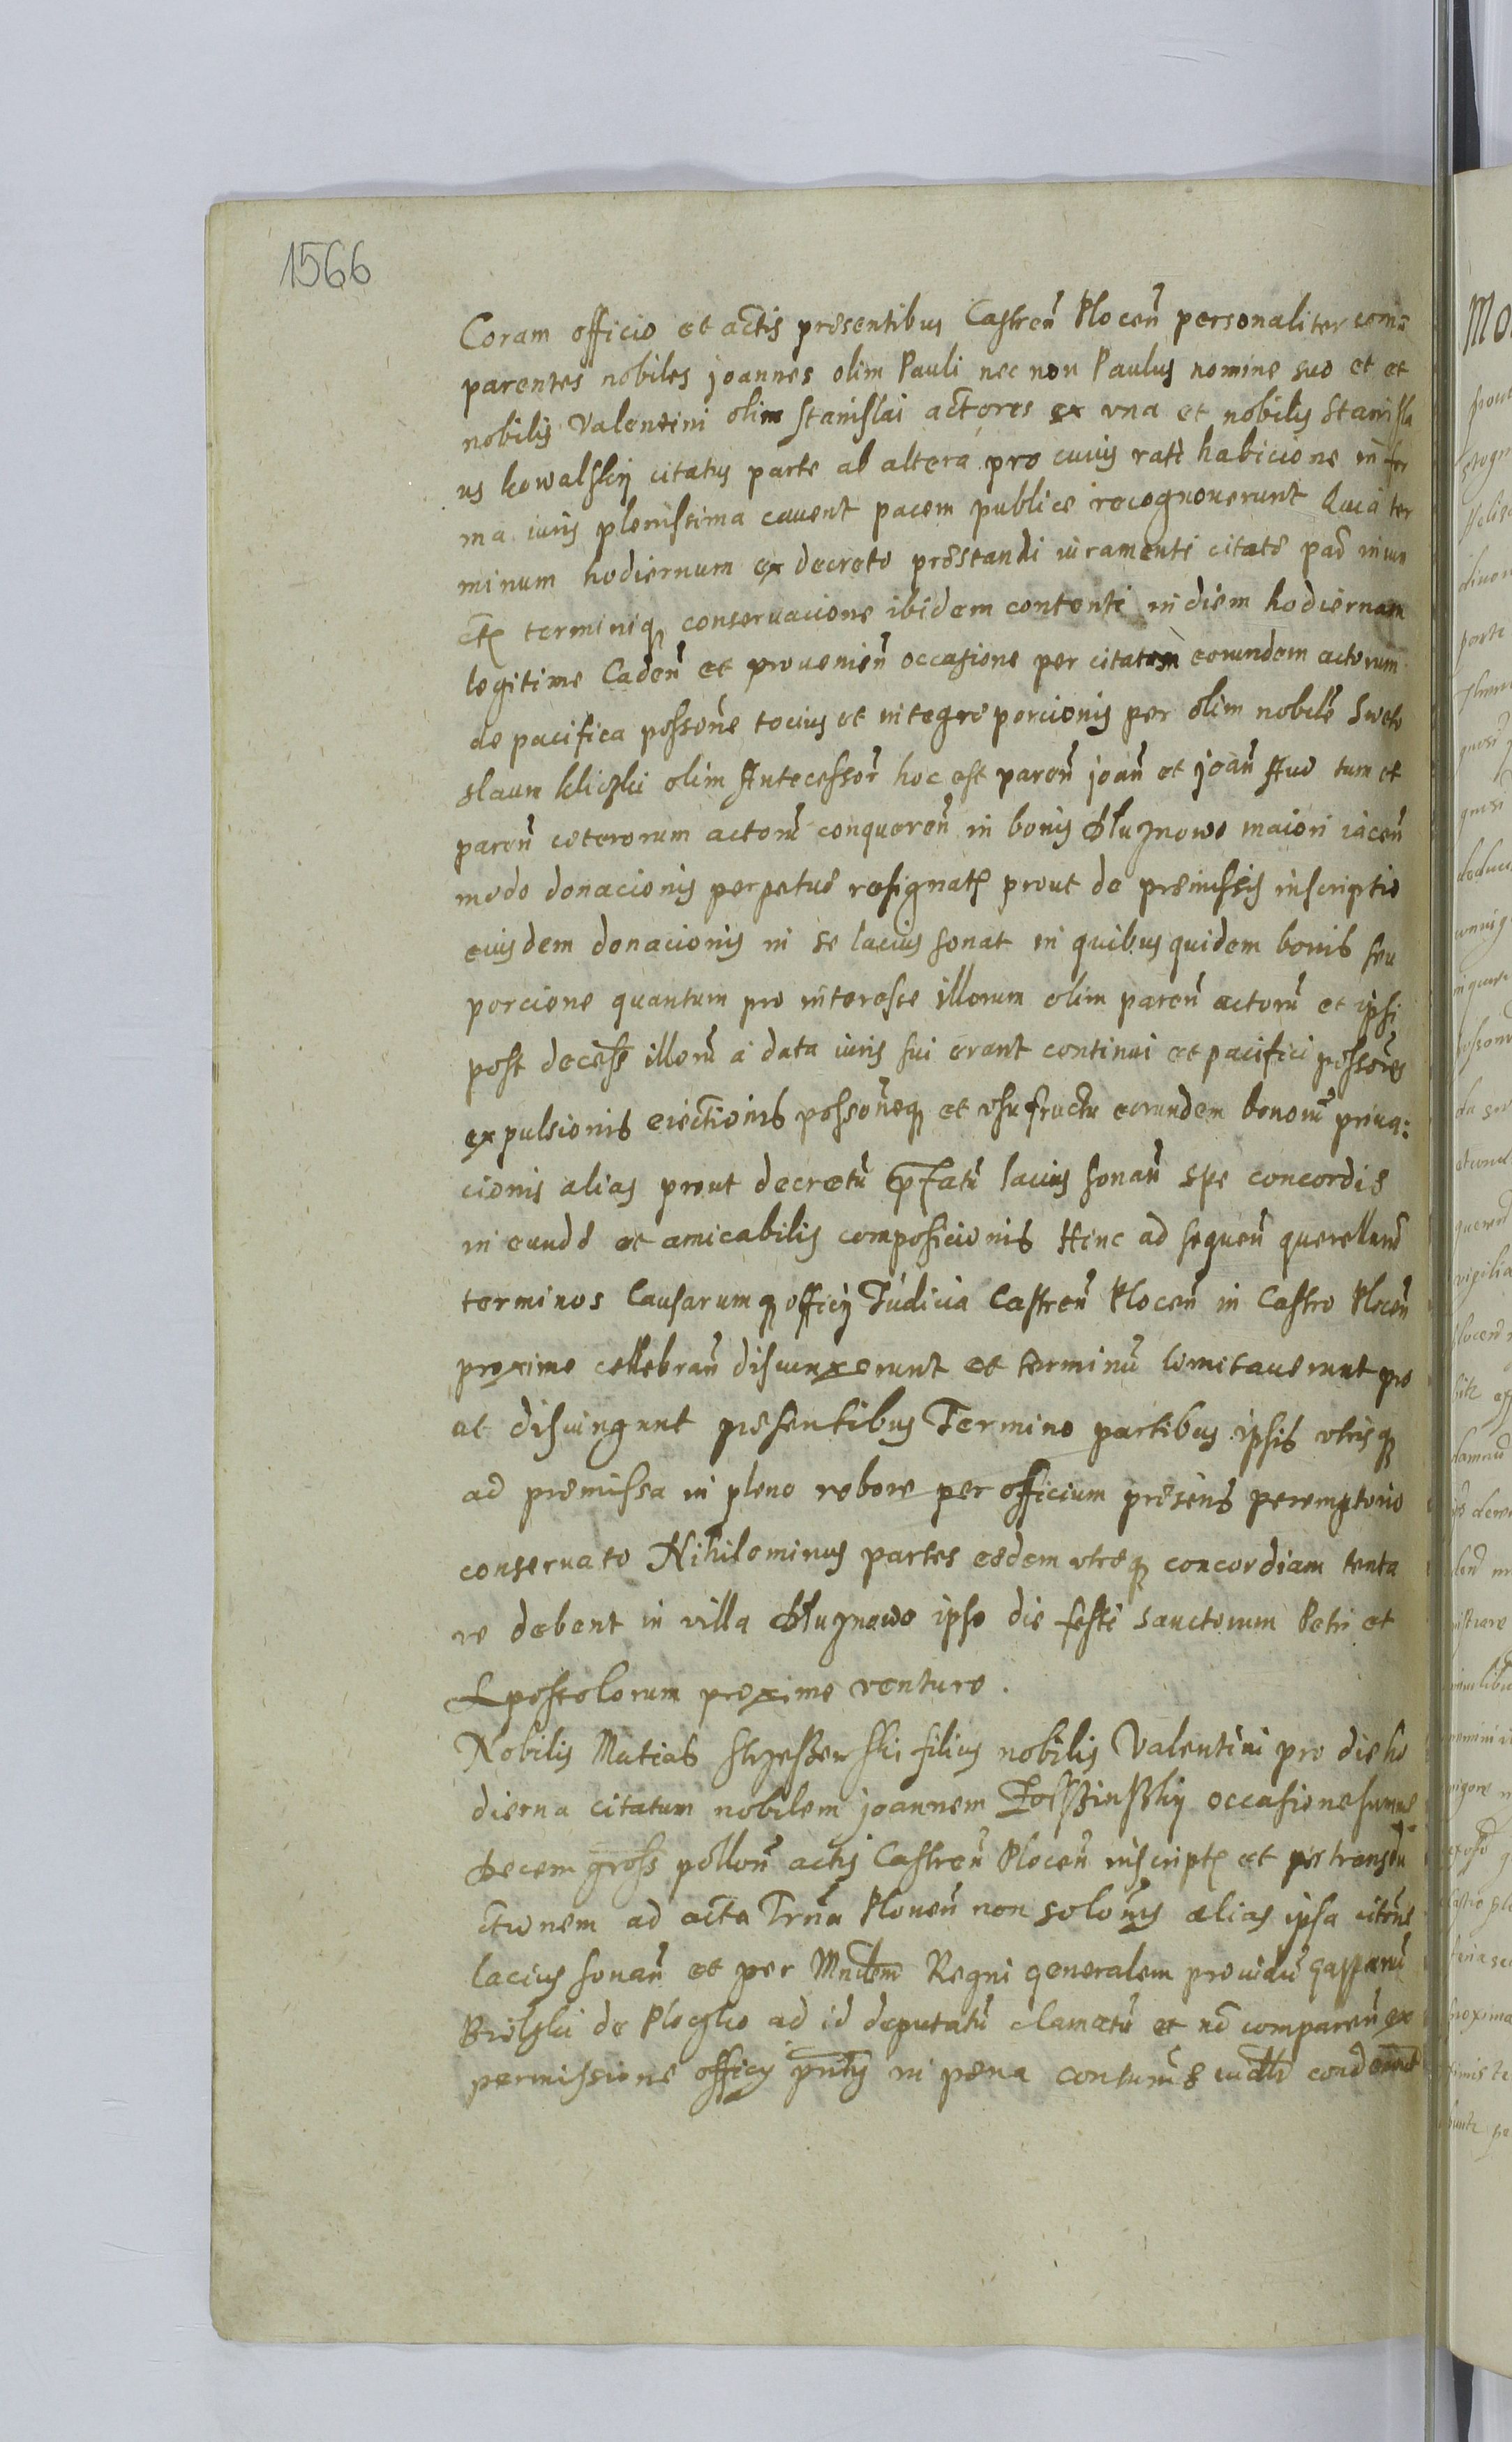 1566
Coram officio et actis præsentibus Castreñ Ploceñ personaliter com
parentes nobiles joannes olim Pauli nec non Paulus nomine suo et et
nobilis Valentini olim Stanislai actores ex vna et nobilis Stanisla
us kowalskij citatus parte ab altera pro cuius rati habicione in for
ma iuris plenissima cauent pacem publice recognouerunt Quia ter
minum hodiernum ex decreto præstandi iuramenti citato
terminiq conseruacione ibidem contenti in diem hodiernam
legitime Cadeñ et proueniеñ occasione per citatum eorundem actorum
de pacifica possone tocius et integre porcionis per olim nobile Sweto
slaum kliczki olim Antecessor hoc est pareñ joañ et joañ Auo tum et
pareñ ceterorum actorũ conquereñ in bonis Dłuznowo maiori iaceñ
modo donacionis perpetuæ resignatę prout de præmissis inscriptio
eiusdem donacionis in se lacius sonat in quibus quidem bonis seu
porcione quantum pro interesse illorum olim pareñ actorũ et ipsi
post decess illorũ a data iuris sui erant continui et pacifici possores
expulsionis eiectionis possoneq et vsufructu eorundem bonorũ priua:
cionis alias prout decretũ pfatũ lacius sonañ spe concordie
in eundæ et amicabilis composicionis Hinc ad sequeñ querellarũ
terminos Causarumq officij Judicia Castreñ Ploceñ in Castro Ploceñ
proxime cellebrañ disiunxerunt et terminũ limitauerunt pro
at disiungunt præsentibus Termino partibus ipsis vtrisq
ad præmissa in pleno robore per officium præsens peremptorio
conseruato Nihilominus partes eædem vtræq concordiam tenta
re debent in villa Dłuznowo ipso die festi sanctorum Petri et
Apostolorum proxime venturo.
Nobilis Matias filius nobilis Valentini pro die ho
dierna citatum nobilem joannem occasione summe
Decem gross polloñ actis Castreñ Ploceñ inscriptę et per transdu
ctionem ad acta Trña Ploneñ non solonis alias ipsa citõne
lacius sonañ et per Mnilem Regni generalem prouidũ Gasparũ
Bielski de Ploczko ad id deputatũ clamatũ et nõ compareñ ex
permissione officij pñtis in pæna condemt